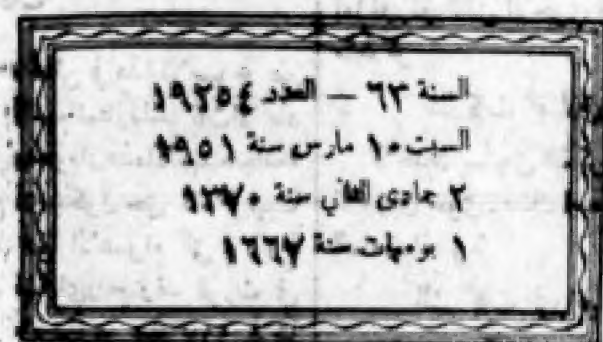 السنة ٦٣ — العدد ١٩٢٥٤
السبت ١٠ مارس سنة ١٩٥١
٢ جمادى الثاني سنة ١٣٧٠
١ برمهات سنة ١٦٦٧